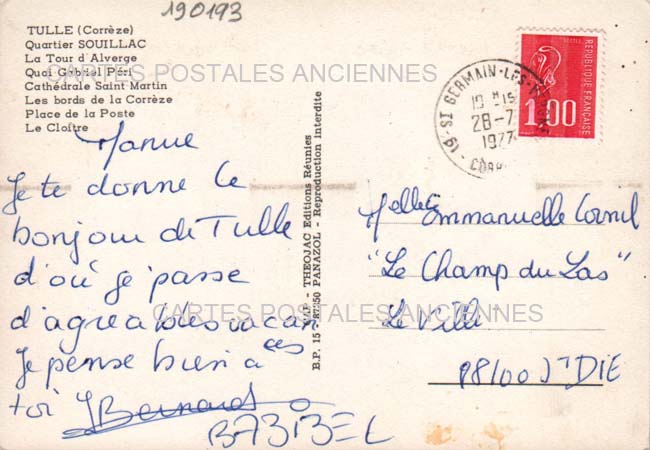 190193
TULLE (Corrèze)
Quartier SOUILLAC
La Tour d'Alverge
Quai Gabriel Péri
Cathédrale Saint Martin
Les bords de la Corrèze
Place de la Poste
Le Cloître
CARTES POSTALES ANCIENNES
Manue
Je te donne le
bonjour de Tulle
d'où je passe
d'agreables vacan
ces
Je pense bien a
toi
Bernard
BABIBEL
VAP - THEOJAC Editions Réunies
B.P. 15 - 87350 PANAZOL - Reproduction interdite
19 - ST GERMAIN-LES-
28-7
1977
REPUBLIQUE FRANÇAISE
1,00
Melle Emmanuelle Cornil
"Le Champ du Las"
Le Villé
88100 St DIE
CARTES POSTALES ANCIENNES